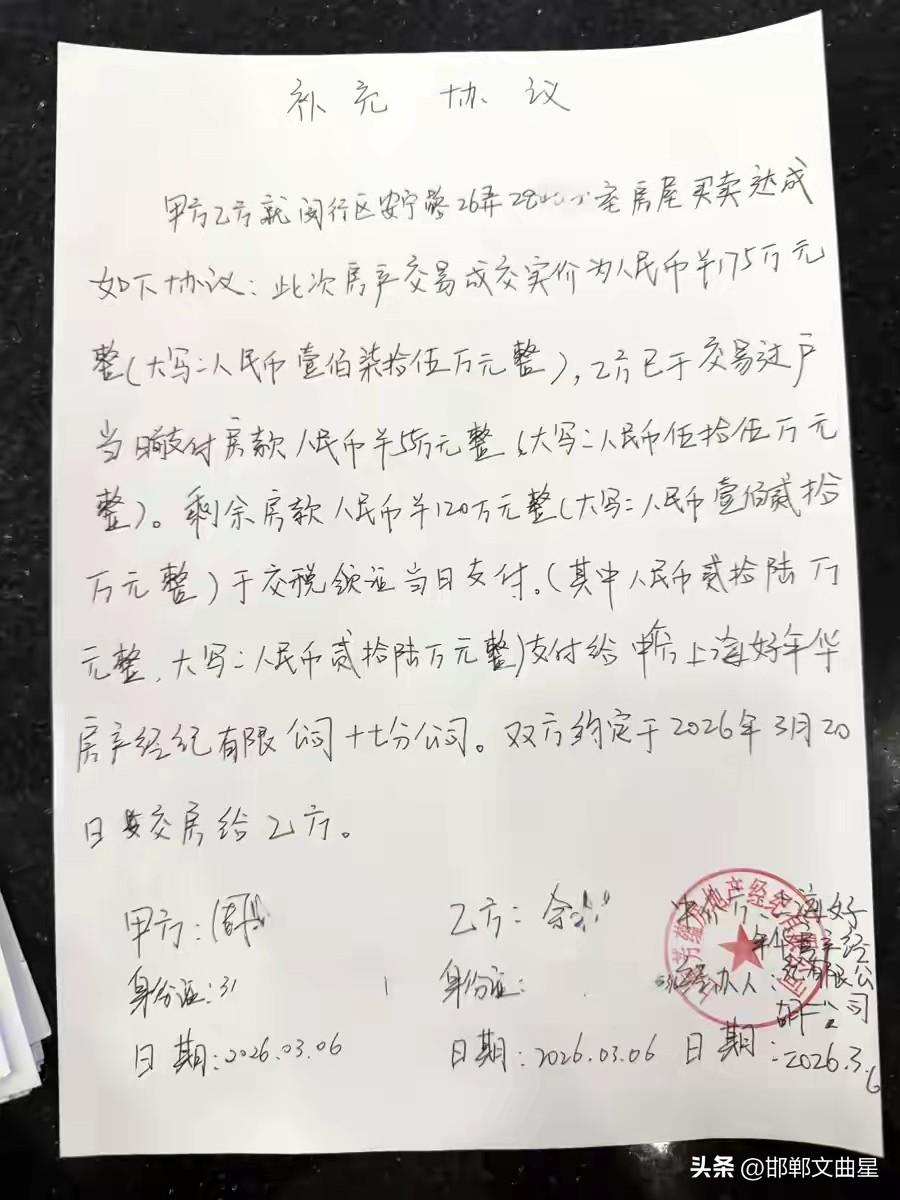 补充 协议
甲方乙方就闵行区安宁路26弄28 室房屋买卖达成
如下协议：此次房产交易成交实价为人民币¥175万元
整（大写：人民币壹佰柒拾伍万元整），乙方已于交易过户
当日支付房款人民币¥55万元整（大写：人民币伍拾伍万元
整）。剩余房款人民币¥120万元整（大写：人民币壹佰贰拾
万元整）于交税领证当日支付。（其中人民币贰拾陆万
元整，大写：人民币贰拾陆万元整）支付给中介方上海好年华
房产经纪有限公司十七分公司。双方约定于2026年3月20
日 交房给乙方。
甲方：周
身份证：31
日期：2026.03.06
乙方：余
身份证：
日期：2026.03.06
中介方：上海好
年华房产经
纪有限公
司十七分公司
经办人：
日期：2026.3.6
地产经纪有限公司
头条 @邯郸文曲星